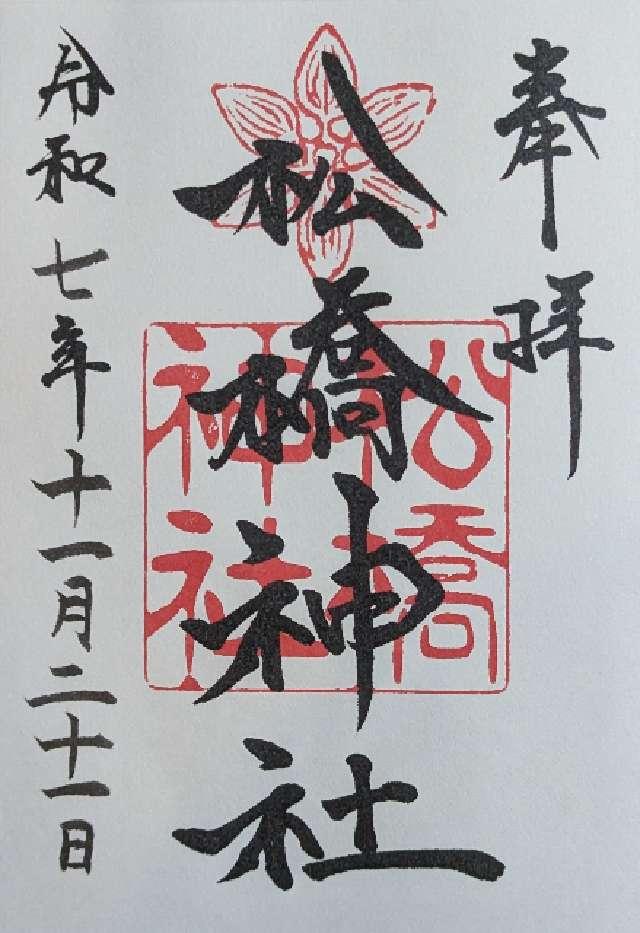 奉拝
松橋神社
松橋神社
令和七年十一月二十一日